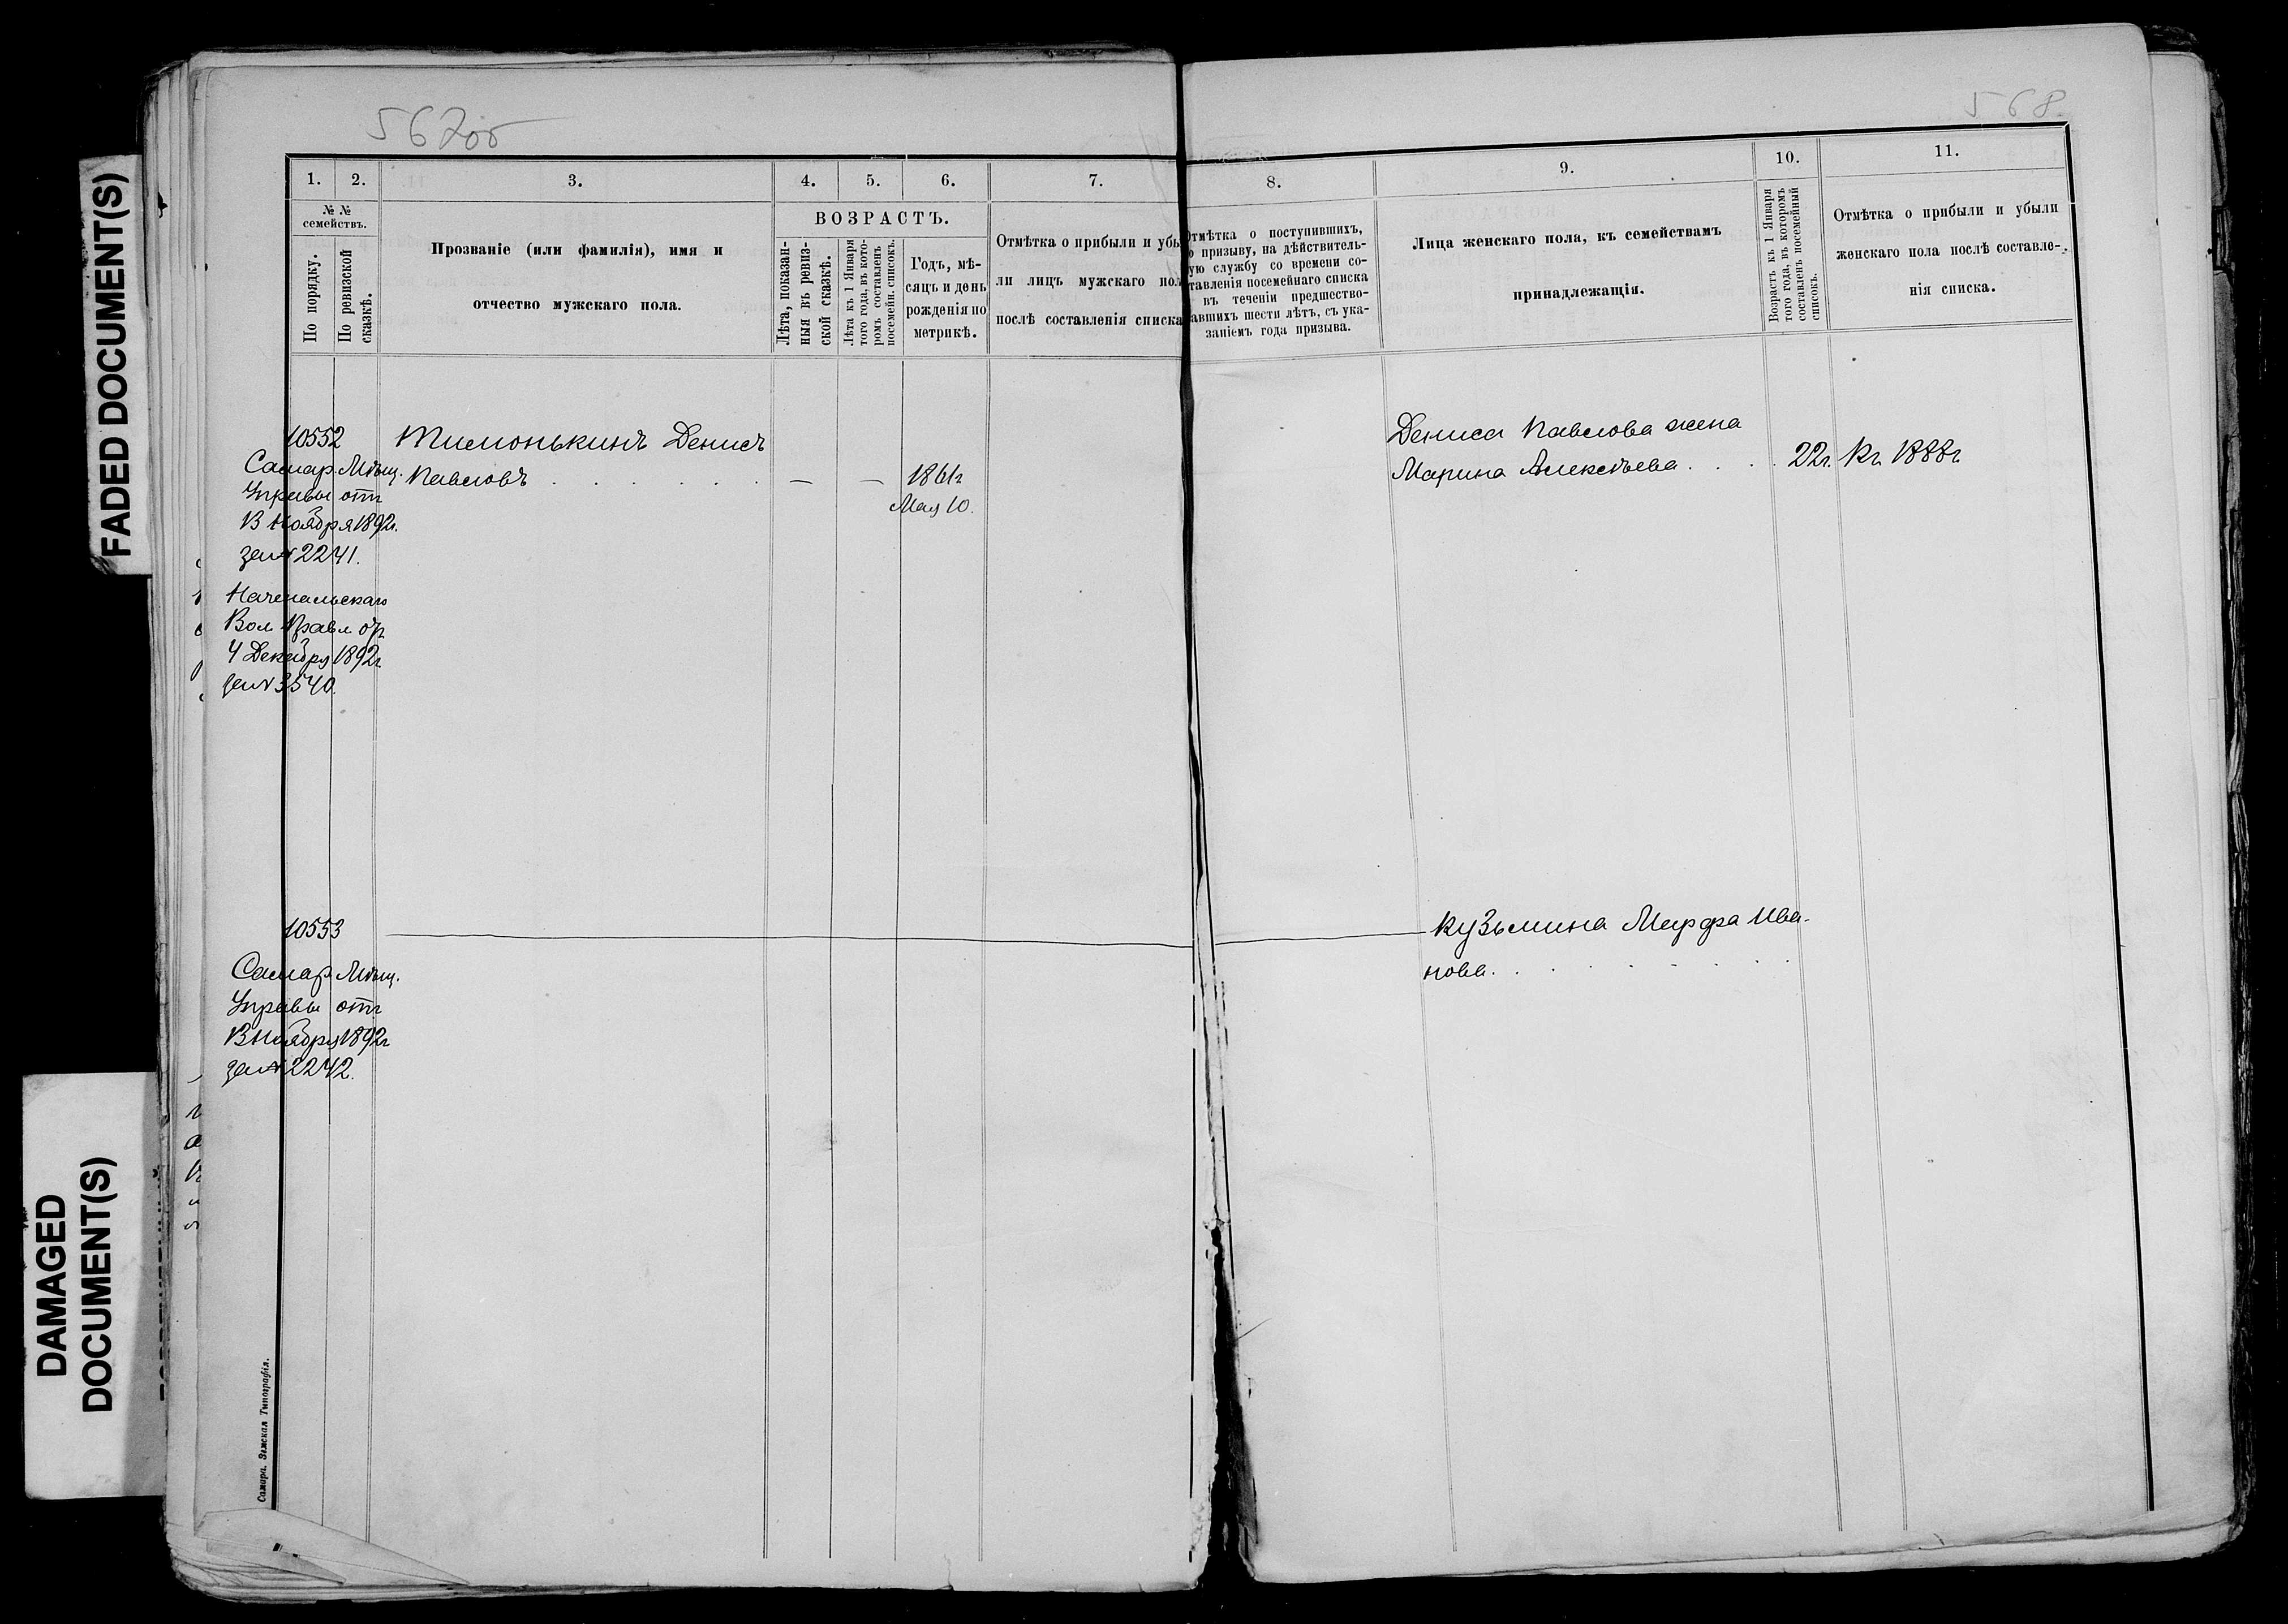 FADED DOCUMENT(S)
DAMAGED
DOCUMENT(S)
567об
1. 2. 3. 4. 5. 6. 7.
№ №
семействъ.
По порядку.
По ревизской
сказкѣ.
Прозваніе (или фамилія), имя и
отчество мужскаго пола.
ВОЗРАСТЪ.
Лѣта, показан-
ныя въ ревиз-
ской сказкѣ.
Лѣта къ 1 Января
того года, въ кото-
ромъ составленъ
посемейн. списокъ.
Годъ, мѣ-
сяцъ и день
рожденія по
метрикѣ.
Отмѣтка о прибыли и убы
ли лицъ мужскаго пол
послѣ составленія списка
10552 Тимонькинъ Денисъ
Самар. Мѣщ. Павловъ . . . . . — — 1861г
Управы отъ Мая 10.
13 Ноября 1892г.
за № 2241.
Вол. Правл. отъ
4 Декабря 1892г
за № 3540.
10553
Самар. Мѣщ.
Управы отъ
13 Ноября 1892г
за № 2242.
Самара. Земская Типографія.
568
8. 9. 10. 11.
Отмѣтка о поступившихъ,
о призыву, на дѣйствитель-
ую службу со времени со-
тавленія посемейнаго списка
въ теченіи предшество-
авшихъ шести лѣтъ, съ ука-
заніемъ года призыва.
Лица женскаго пола, къ семействамъ
принадлежащія.
Возрастъ къ 1 Января
того года, въ которомъ
составленъ посемейный
списокъ.
Отмѣтка о прибыли и убыли
женскаго пола послѣ составле-
нія списка.
Дениса Павлова жена
Марина Алексѣева . . . . 22г. Къ 1888г
Кузьмина Марфа Ива-
нова. . . . . . . .